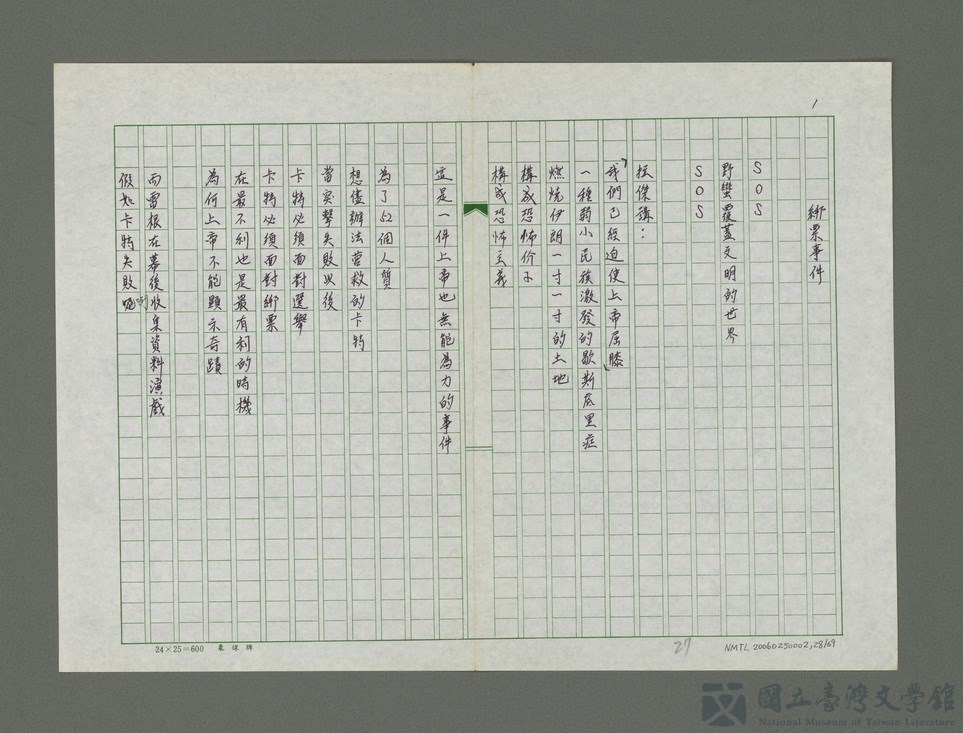 1
綁票事件
SOS
野蠻覆蓋文明的世界
SOS
我們已經迫使上帝屈膝
一種弱小民族激發的歇斯底里症
燃燒伊朗一寸一寸的土地
構成恐怖份子
構成恐怖主義
這是一件上帝也無能為力的事件
為了52個人質
想儘辦法營救的卡特
當突擊失敗以後
卡特必須面對選舉
卡特必須面對綁票
在最不利也是最有利的時機
為何上帝不能顯示奇蹟
而雷根在幕後收集資料演戲
假如卡特失敗
24×25=600
27
NMTL 20060250002,28/69
國立臺灣文學館
National Museum of Taiwan Literature